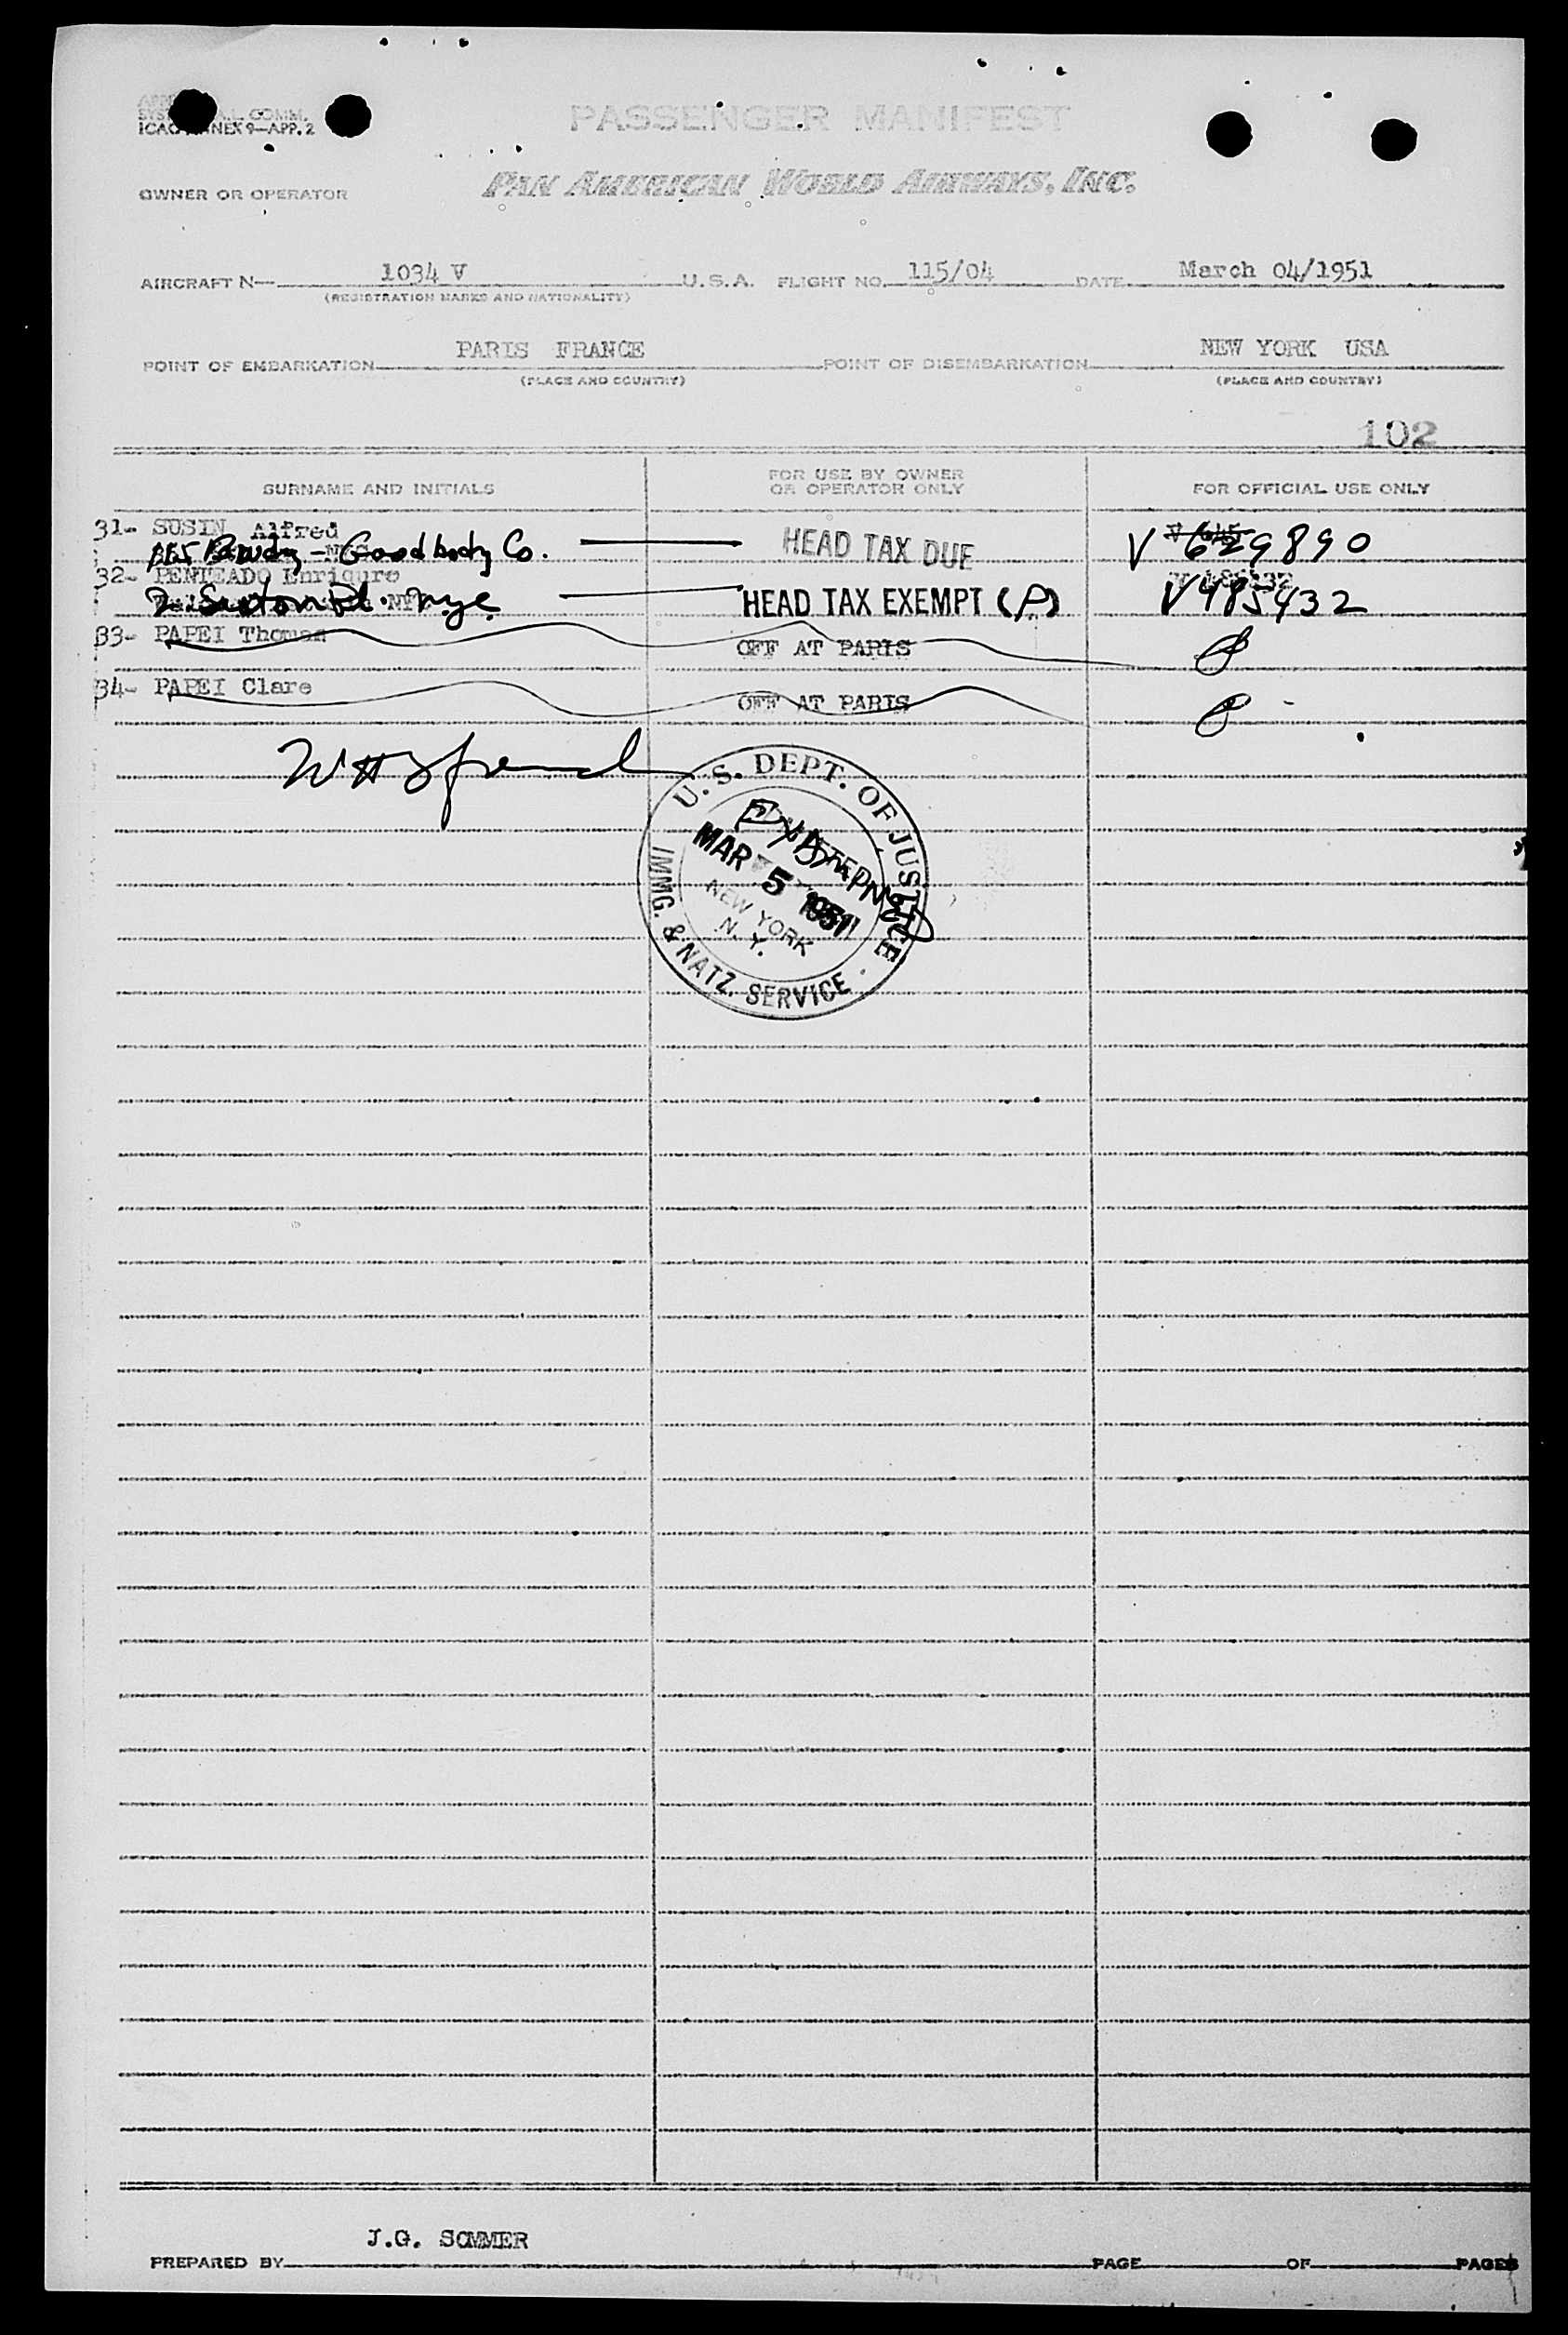 SYS COMM.
ICAO ANNEX 9—APP. 2
PASSENGER MANIFEST
OWNER OR OPERATOR PAN AMERICAN WORLD AIRWAYS, INC.
AIRCRAFT N— 1034 V U.S.A. FLIGHT NO. 115/04 DATE March 04/1951
(REGISTRATION MARKS AND NATIONALITY)
POINT OF EMBARKATION PARIS FRANCE POINT OF DISEMBARKATION NEW YORK USA
(PLACE AND COUNTRY) (PLACE AND COUNTRY)
102
SURNAME AND INITIALS FOR USE BY OWNER OR OPERATOR ONLY FOR OFFICIAL USE ONLY
31- SUSIN Alfred
Goodbody Co. HEAD TAX DUE V 629890
32- PENTEADO Enriqure
2 Sutton Pl. nyc HEAD TAX EXEMPT (P) V485432
33- PAPEI Thomas OFF AT PARIS
34- PAPEI Clare OFF AT PARIS
U.S. DEPT. OF JUSTICE
MAR 5 1951
NEW YORK
N. Y.
IMMG. & NATZ. SERVICE
J.G. SOMMER
PREPARED BY PAGE OF PAGES